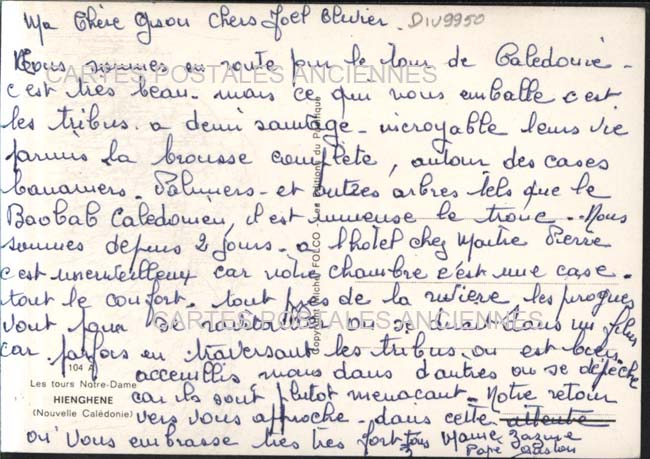 Ma Chère Gisou Chers Joël Olivier. DIV9950
Nous sommes en route pour le tour de Caledonie -
CARTES POSTALES ANCIENNES
c'est très beau - mais ce qui nous emballe c'est
les tribus a demi sauvage - incroyable leurs vie
parmis la brousse complète, autour des cases
bananiers - Palmiers - et autres arbres tels que le
Baobab Caledonien, il est immense le tronc - Nous
sommes depuis 2 jours - a l'hotel chez Maitre Pierre
c'est merveilleux car notre chambre c'est une case -
tout le confort - tout près de la rivière, les pirogues
vont pour se ravitailler on se dirait dans un film
CARTES POSTALES ANCIENNES
car parfois en traversant les tribus on est bien
accueillis mais dans d'autres on se dépêche
car ils sont plutot menaçant - Notre retour
vers vous approche - dans cette attente
on vous embrasse très très fort tous Mamie Zazine
Pape Gaston
104 A
Les tours Notre-Dame
HIENGHENE
(Nouvelle Calédonie)
Copyright Michel FOLCO - Les Editions du Pacifique